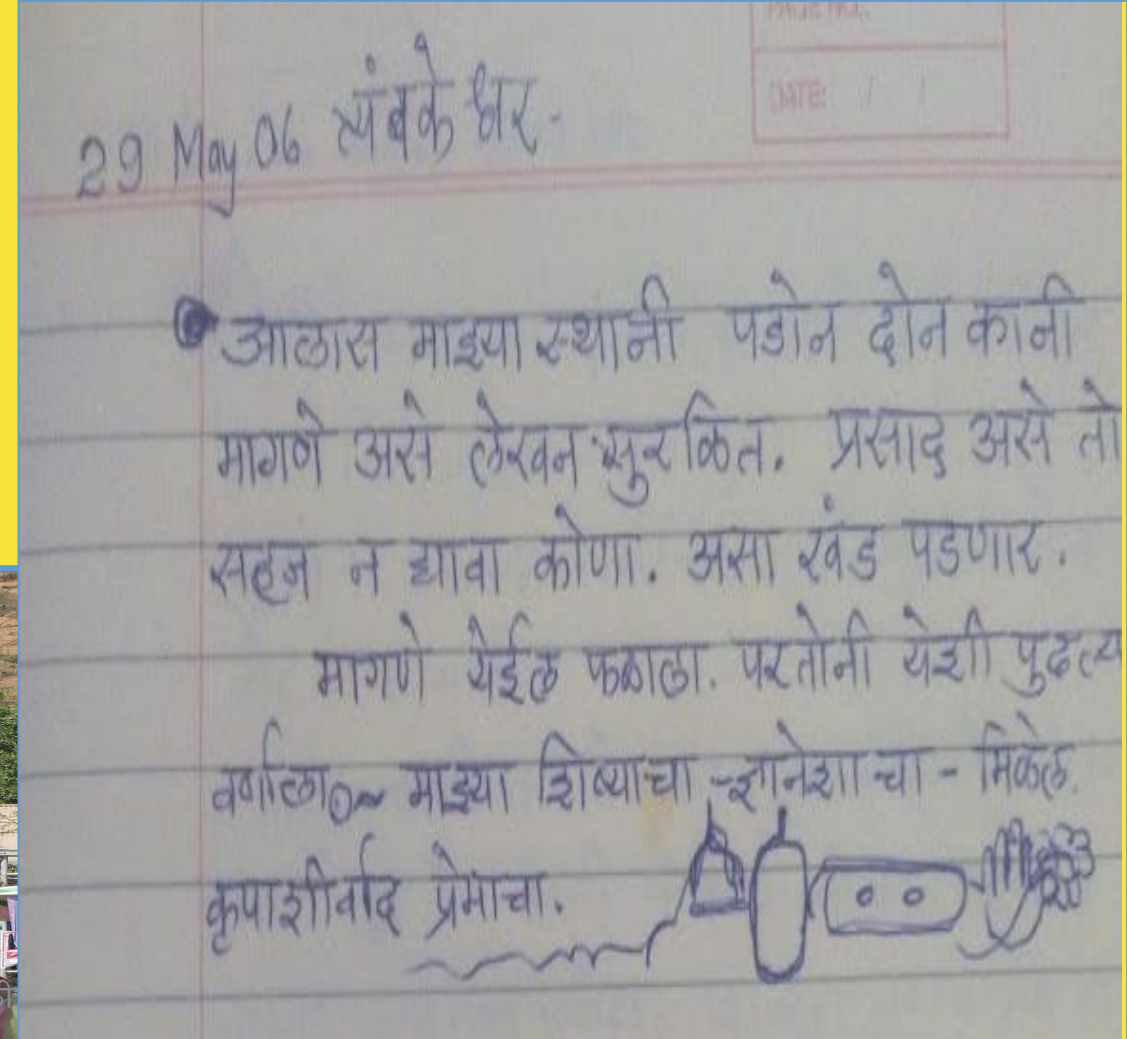 PAGE NO.
DATE: / /
29 May 06 त्यंबकेश्वर -
आलास माझ्या स्थानी पडोन दोन कानी
मागणे असे लेखन सुरळित. प्रसाद असे तो
सहज न द्यावा कोणा. असा खंड पडणार.
मागणे येईल फळाला. परतोनी येशी पुढल्य
वर्षाला माझ्या शिष्याचा - ज्ञानेशाचा - मिळेल.
कृपाशीर्वाद प्रेमाचा.